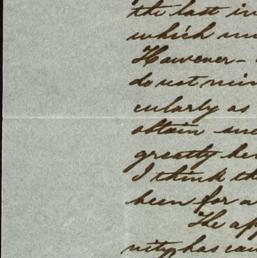 the last in
which mu
However –
do not min
cularly as
obtain suc
greatly be
I think th
been for a
The app
unity has cau